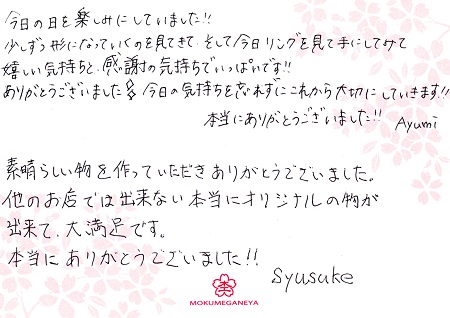 今日の日を楽しみにしていました!!
少しずつ形になっていくのを見てきて、そして今日リングを見て手にしてみて
嬉しい気持ちと、感謝の気持ちでいっぱいです!!
ありがとうございました 今日の気持ちを忘れずにこれから大切にしていきます!!
本当にありがとうございました!! Ayumi
素晴らしい物を作っていただきありがとうございました。
他のお店では出来ない本当にオリジナルの物が
出来て、大満足です。
本当にありがとうございました!!
Syusuke
MOKUMEGANEYA